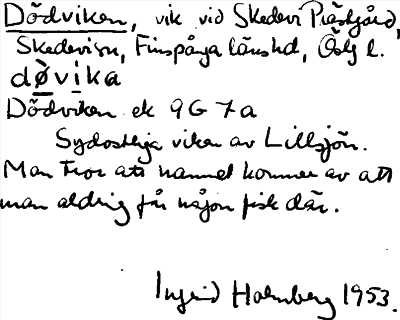 Dödviken, vik vid Skedevi Prästgård,
Skedevi sn, Finspånga länshd, Östg l.
dø̀vika
Dödviken ek 9G 7a
Sydostliga viken av Lillsjön.
Man tror att namnet kommer av att
man aldrig får någon fisk där.
Ingrid Holmberg 1953.